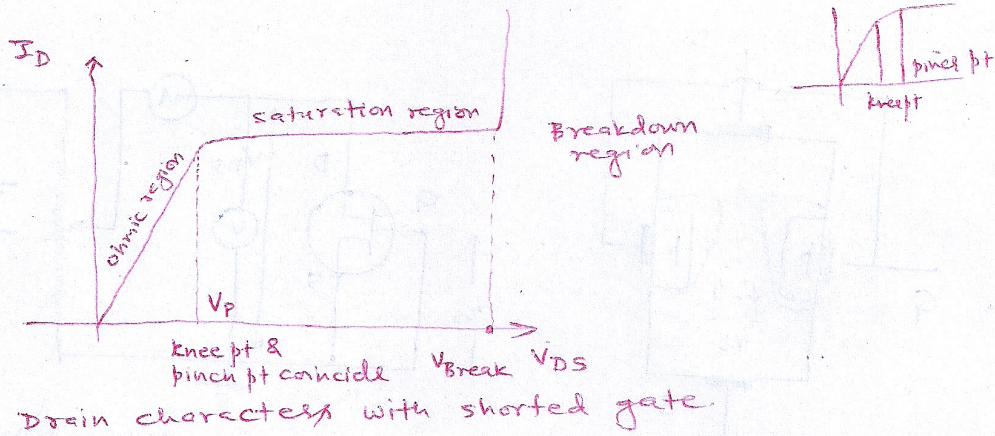 I_D
saturation region
ohmic region
Breakdown
region
V_P
knee pt &
pinch pt coincide
V_Break
V_DS
pinch pt
knee pt
Drain characters with shorted gate.